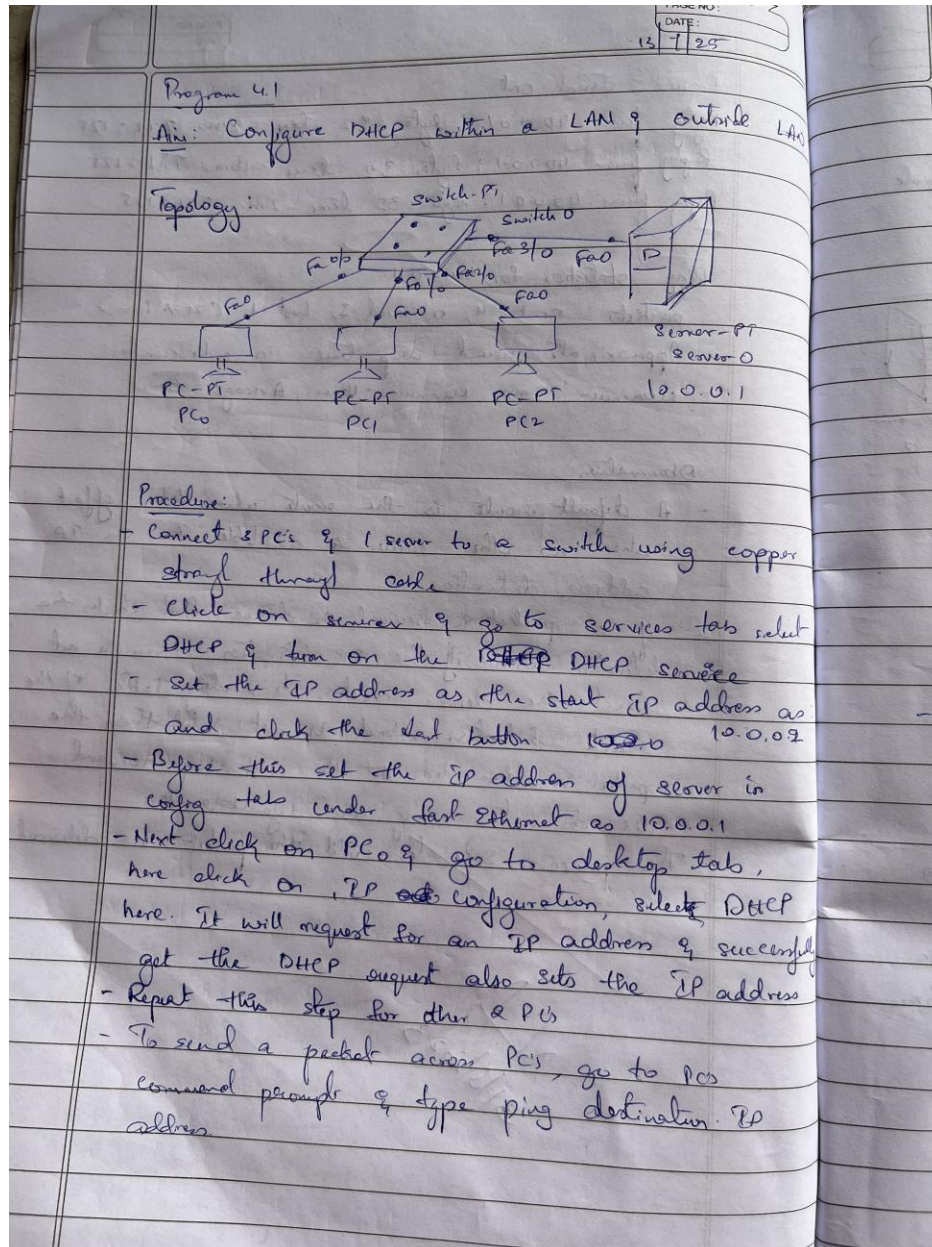 PAGE NO:
DATE:
13 25
Program 4.1
Aim: Configure DHCP within a LAN & outside LAN
Topology:
Switch-PT
Switch 0
Fa 0/0
Fa 1/0
Fa 2/0
Fa 3/0
Fa0
Fa0
Fa0
Fa0
D
Server-PT
Server-0
10.0.0.1
PC-PT
PC0
PC-PT
PC1
PC-PT
PC2
Procedure:
- Connect 3 PC's & 1 server to a switch using copper
cable
- Click on & go to services tab select
DHCP & turn on the DHCP service
- Set the IP address as the start IP address as
and click the button 10.0.02
- Before this set the IP address of server in
config tab under fast Ethernet as 10.0.0.1
- Next click on PC0 & go to desktop tab,
here click on, IP configuration, select DHCP
here. It will request for an IP address & successfully
get the DHCP request also sets the IP address
- Repeat this step for other 2 PCs
- To send a packet across PC's, go to PCs
command prompt & type ping destination IP
address.